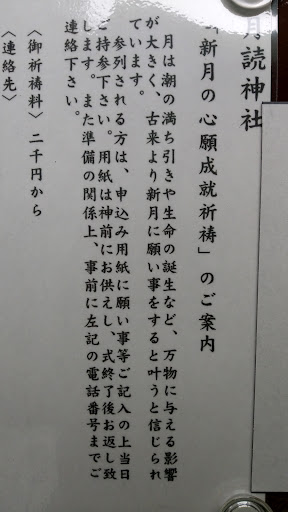 月読神社
「新月の心願成就祈祷」のご案内
月は潮の満ち引きや生命の誕生など、万物に与える影響
が大きく、古来より新月に願い事をすると叶うと信じられ
ています。
参列される方は、申込み用紙に願い事等ご記入の上当日
ご持参下さい。用紙は神前にお供えし、式終了後お返し致
します。また準備の関係上、事前に左記の電話番号までご
連絡下さい。
〈御祈祷料〉二千円から
〈連絡先〉